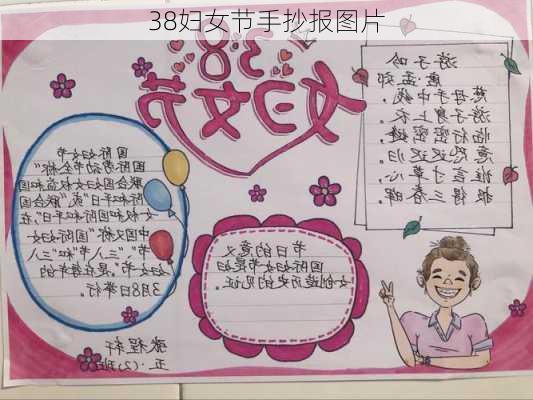 38妇女节手抄报图片
38
妇女节
游子吟
唐 孟郊
慈母手中线，
游子身上衣。
临行密密缝，
意恐迟迟归。
谁言寸草心，
报得三春晖。
国际妇女节
国际劳动节全称“
联合国妇女权益和国
际和平日”或“联合国
女权和国际和平日”在
中国又称“国际妇女
节”、“三八”节和“三八
妇女节”，是在每年的
3月8日举行。
节日的意义
国际妇女节是妇
女创造历史的见证。
张程轩
五·(2)班